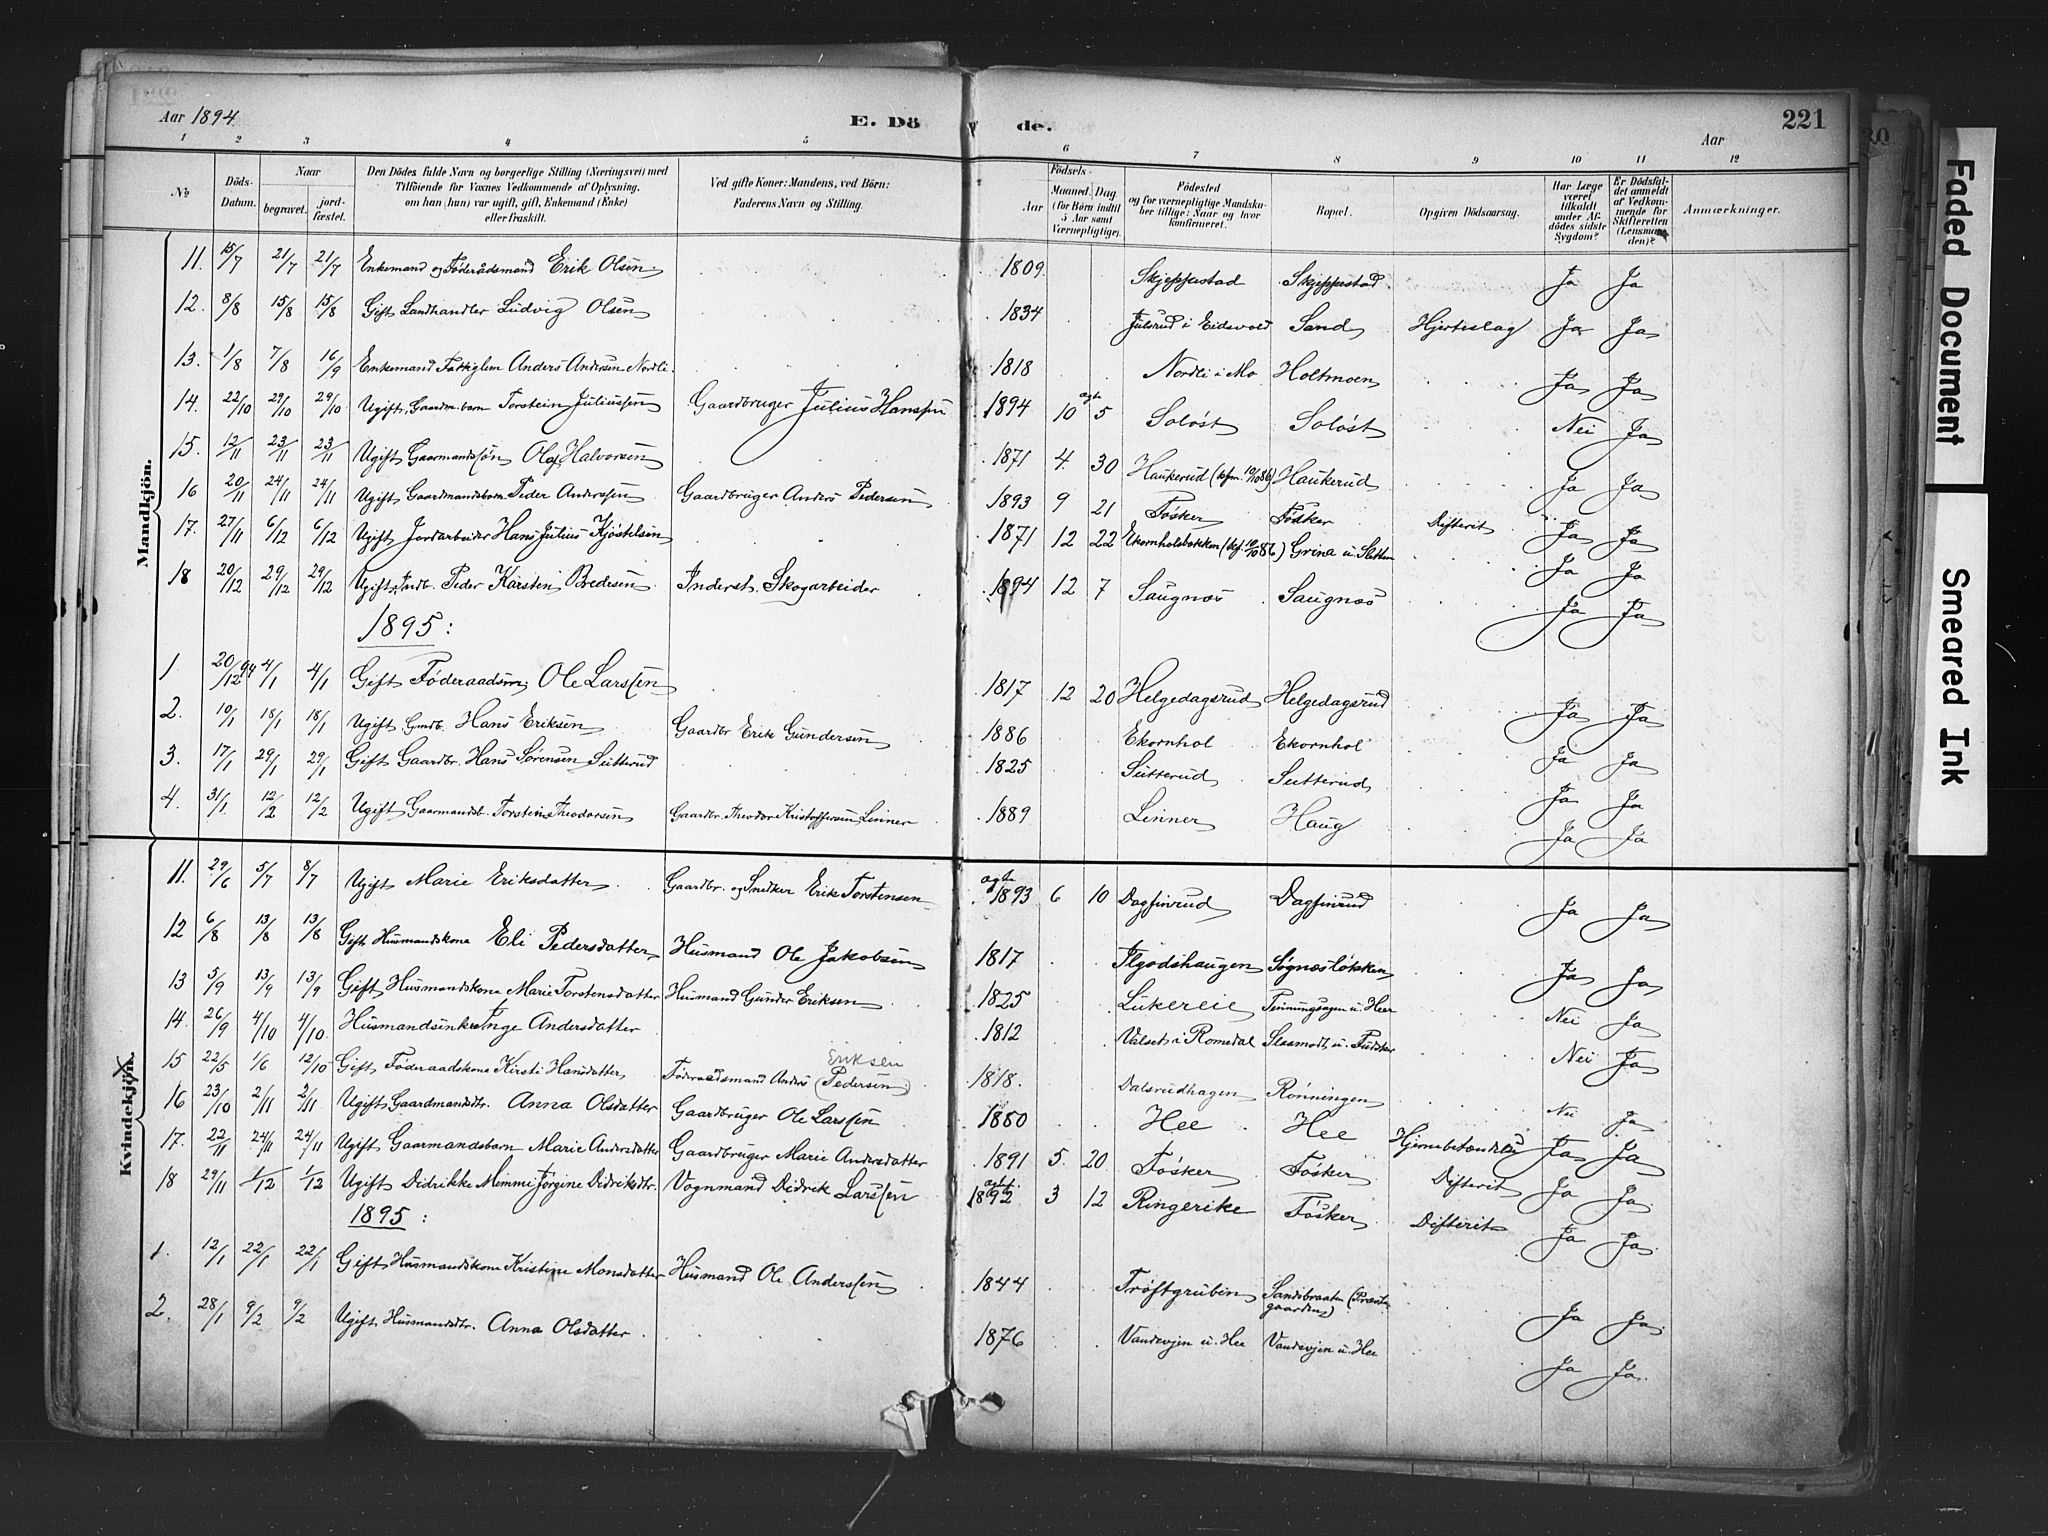 Aar 1894.
E. Dö de.
Aar
221
1 2 3 4 5 6 7 8 9 10 11 12
No
Döds-Datum.
Naar
begravet.
jord-fæstet.
Den Dödes fulde Navn og borgerlige Stilling (Næringsvei) med
Tilföiende for Voxnes Vedkommende af Oplysning,
om han (hun) var ugift, gift, Enkemand (Enke)
eller fraskilt.
Ved gifte Koner: Mandens, ved Börn:
Faderens Navn og Stilling.
Födsels-
Aar
Maaned. Dag.
(for Börn indtil
5 Aar samt
Værnepligtige).
Födested
og for værnepligtige Mandska-
ber tillige: Naar og hvor
konfirmeret.
Bopæl.
Opgiven Dödsaarsag.
Har Læge
været
tilkaldt
under Af-
dödes sidste
Sygdom?
Er Dödsfal-
det anmeldt
af Vedkom-
mende for
Skifteretten
(Lensman-
den)?
Anmærkninger.
Mandkjön.
11. 15/7 21/7 21/7 Enkemand og Föderådsmand Erik Olsen 1809 Skjeppestad Skjeppestad Ja Ja
12. 8/8 15/8 15/8 Gift Landhandler Ludvig Olsen 1834 Julsrud i Eidsvold Sand Hjerteslag Ja Ja
13. 1/8 7/8 16/9 Enkemand Fattiglem Anders Andersen Nordli 1818 Nordli i Mo Holtmoen Ja Ja
14. 22/10 29/10 29/10 Ugift Gaardm.barn Torstein Juliussen Gaardbruger Julius Hanssen 1894 10 agt. 5 Soløst Soløst Nei Ja
15. 12/11 23/11 23/11 Ugift Gaarmandssøn Olaf Halvorsen 1871 4. 30 Haukerud (kfm. 10/10 86) Haukerud Ja Ja
16 20/11 24/11 24/11 Ugift Gaardmandsbarn Peder Anderssen Gaardbruger Anders Pedersen 1893 9 21 Føsker Føsker Difterit Ja Ja
17. 27/11 6/12 6/12 Ugift Jordarbeider Hans Julius Kjøstelsen 1871 12 22 Ekornholsbakken (kf. 10/10 86) Grina u. Slettum Ja Ja
18 20/12 29/12 29/12 Ugift Indb. Peder Karsten Bredesen Inderst, Skogarbeider 1894 12 7 Saugnæs Saugnæs Ja Ja
1895:
1. 20/12 94 4/1 4/1 Gift Föderaadsm. Ole Larssen 1817 12 20 Helgedagsrud Helgedagsrud Ja Ja
2. 10/1 18/1 18/1 Ugift Gmdb. Hans Eriksen Gaardbr Erik Gundersen 1886 Ekornhol Ekornhol Ja Ja
3. 17/1 29/1 29/1 Gift Gaardbr. Hans Sørensen Sutterud 1825 Sutterud Sutterud Ja Ja
4. 31/1. 12/2 12/2 Ugift Gaarmandsb. Torstein Theodorsen Gaardbr. Theodor Kristoffersen Linner 1889 Linner Haug Ja Ja
Kvindekjön.
11. 29/6 5/7 8/7 Ugift Marie Eriksdatter Gaardbr. og Snedker Erik Torstensen agt. 1893 6 10 Dagfinrud Dagfinrud Ja Ja
12 6/8 13/8 13/8 Gift Husmandskone Eli Pedersdatter Husmand Ole Jakobsen 1817 Flgodshaugen Sognesløkken Ja Ja
13 5/9 13/9 13/9 Gift Husmandskone Marie Torstensdatter Husmand Gunder Eriksen 1825 Lukereie u. Heer Nei Ja
14. 26/9 4/10 4/10. Husmandsenke Inge Andersdatter 1812 Valset i Romedal u. Fudsker Nei Ja
15 22/5 1/6 12/10 Gift Föderaadskone Kirsti Hansdatter Föderaadsmand Anders (Pedersen) Eriksen 1818. Dalsrudhagen Rønningen Nei Ja
16 23/10 2/11 2/11 Ugift Gaardmandsdtr. Anna Olsdatter Gaardbruger Ole Larssen 1880 Hee Hee Hjernebetændelse Ja Ja
17. 22/11 24/11 24/11 Ugift Gaarmandsbarn Marie Andersdatter Gaardbruger Marie Andersdatter 1891 5. 20. Føsker Føsker Difterit Ja Ja
18 29/11 1/12 1/12 Ugift Didrikke Mimmi Jørgine Didriksdtr. Vognmand Didrik Larssen agt. 1892 3 12 Ringerike Føsker Difterit Ja Ja
1895:
1. 12/1 22/1 22/1 Gift Husmandskone Kristine Monsdatter Husmand Ole Anderssen 1844 Trøftgruben Sandbraaten (Præste-gaarden) Ja Ja
2. 28/1 9/2 9/2 Ugift Husmandsdtr. Anna Olsdatter 1876 Vandsvjen u. Hee Vandsvjen u. Hee Ja Ja
Faded Document
Smeared Ink